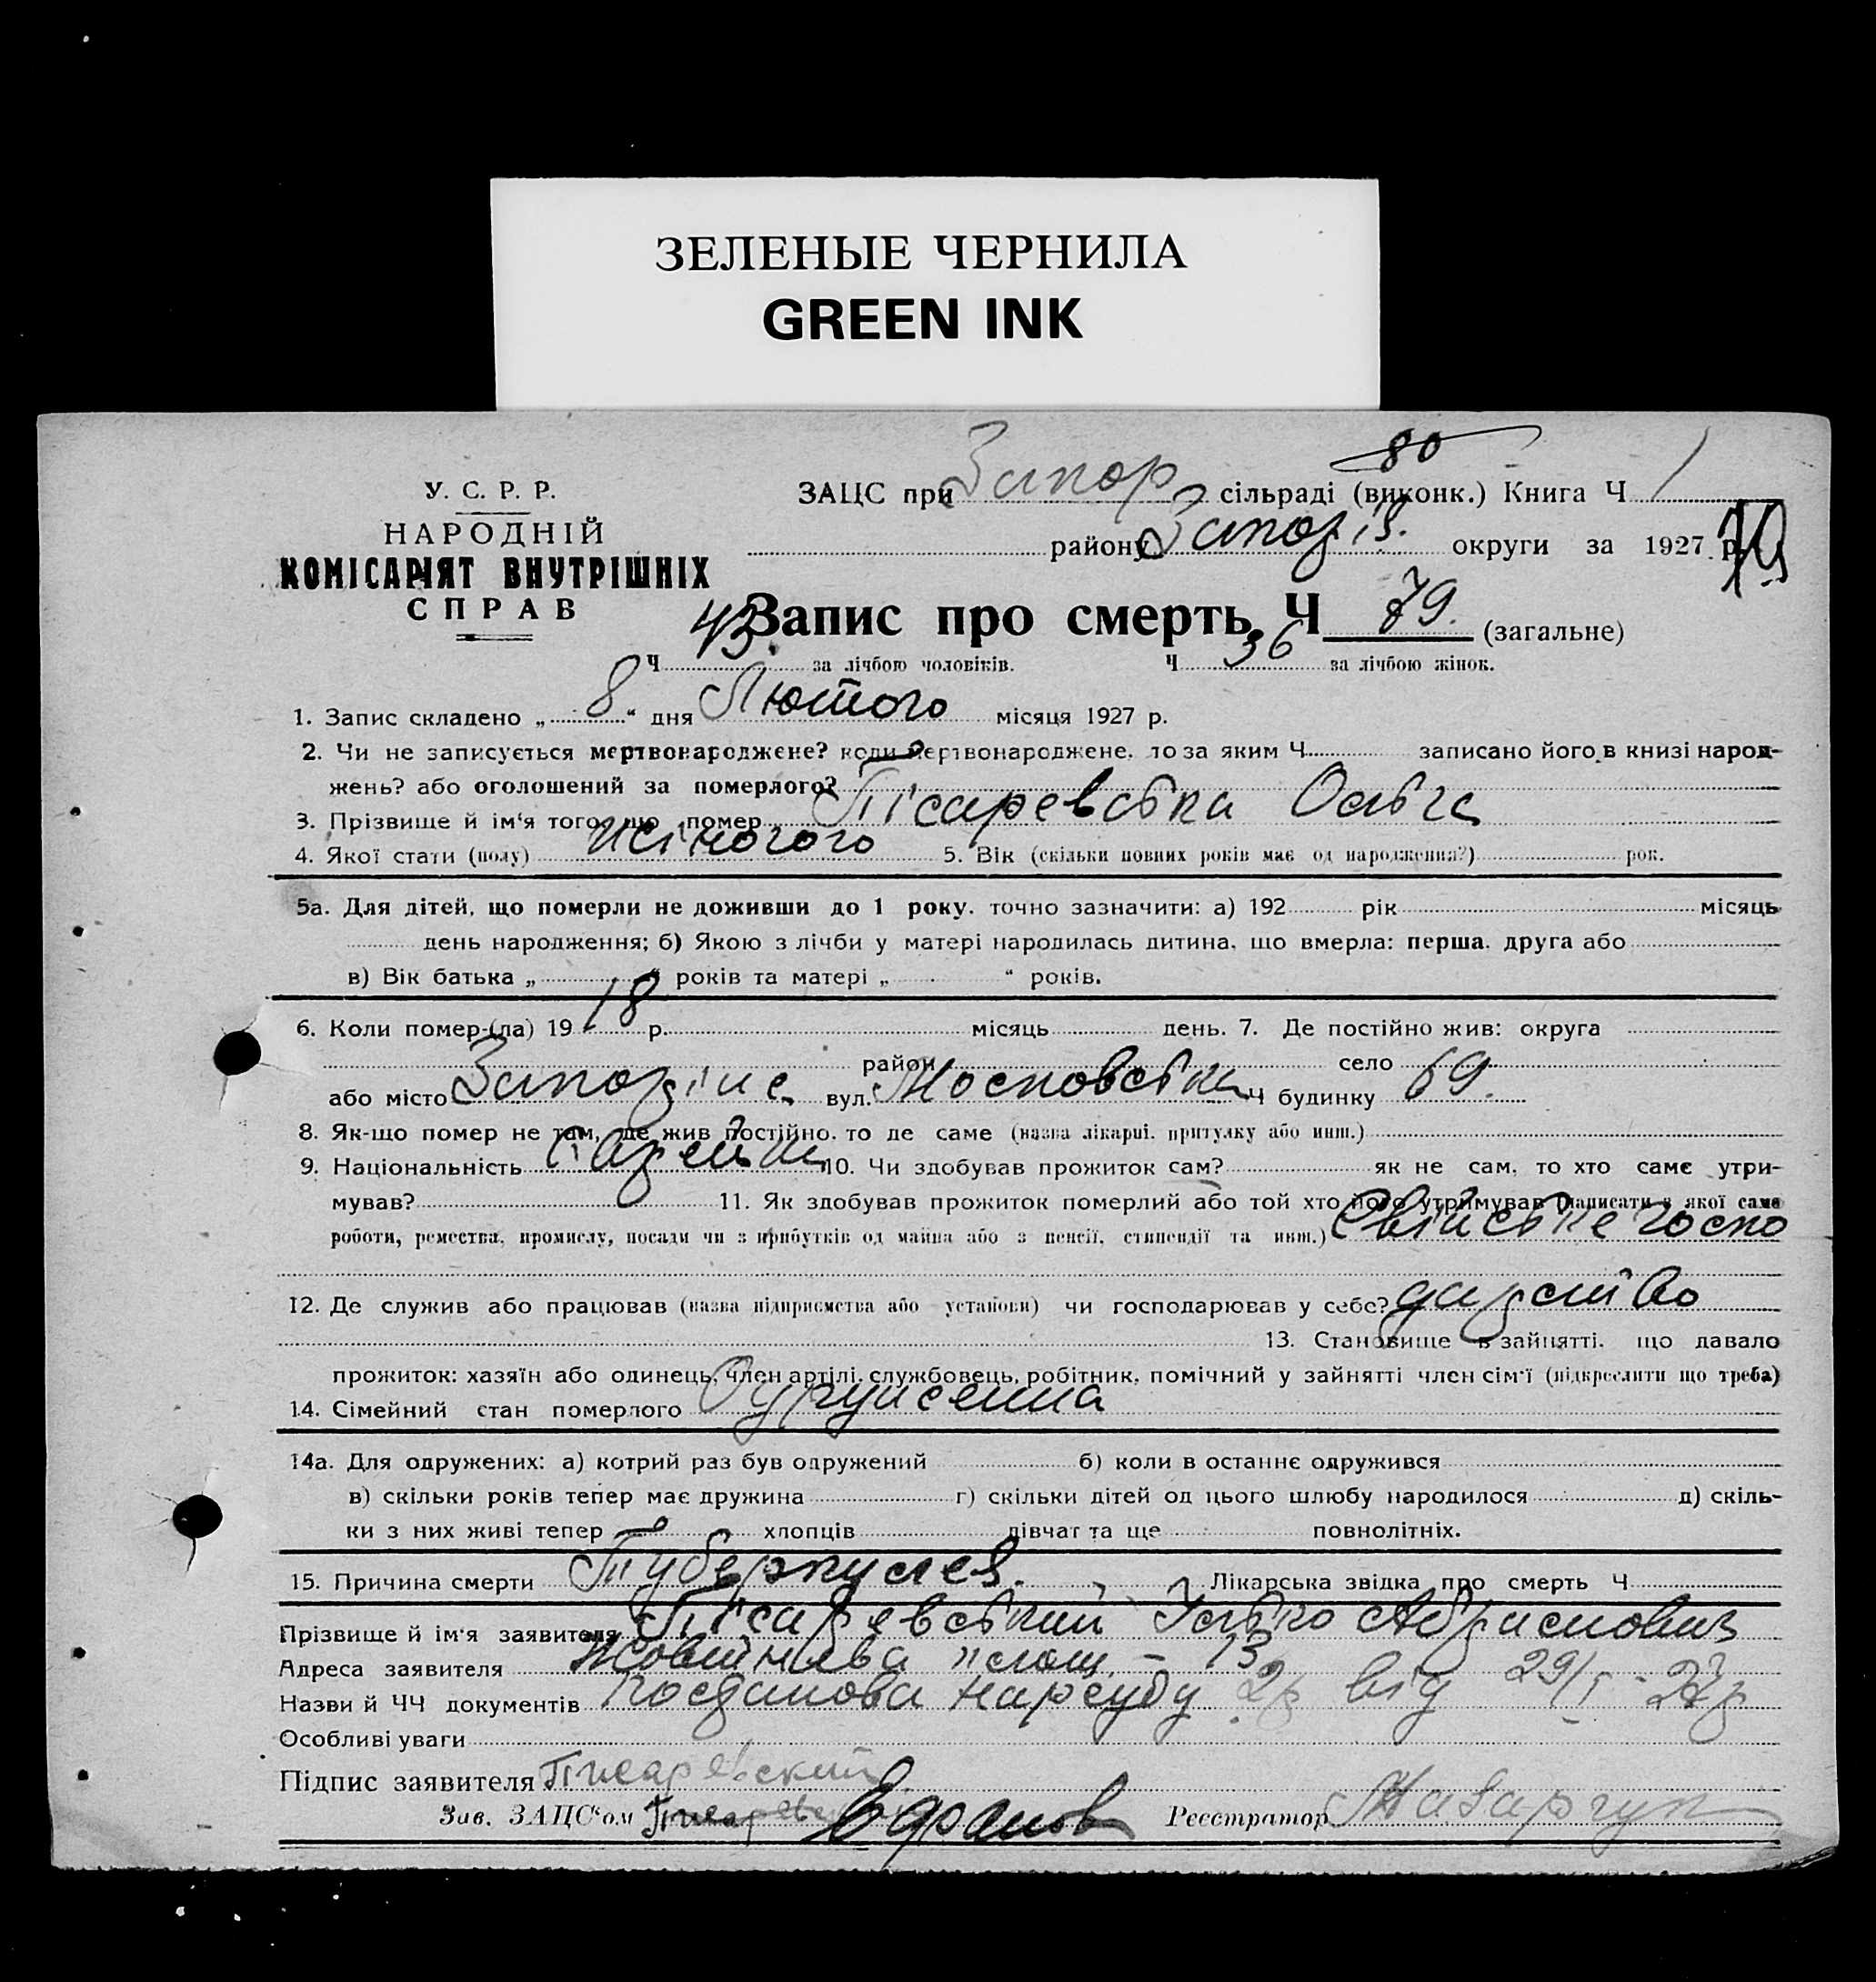 ЗЕЛЕНЫЕ ЧЕРНИЛА
GREEN INK
80
У. С. Р. Р.
НАРОДНІЙ
КОМІСАРІЯТ ВНУТРІШНІХ
СПРАВ
ЗАЦС при Запор сільраді (виконк.) Книга Ч 1
району Запоріз. округи за 1927 р.
79
Запис про смерть Ч 79. (загальне)
Ч 43. за лічбою чоловіків. Ч 36 за лічбою жінок.
1. Запис складено „ 8 “ дня Лютого місяця 1927 р.
2. Чи не записується мертвонароджене? коли мертвонароджене, то за яким Ч записано його в книзі народ-
жень? або оголошений за померлого?
3. Прізвище й ім'я того, що помер Пісаревська Ольга
4. Якої стати (полу) жіночого 5. Вік (скільки повних років має од народження?) рок.
5а. Для дітей, що померли не доживши до 1 року, точно зазначити: а) 192 рік місяць
день народження; б) Якою з лічби у матері народилась дитина, що вмерла: перша, друга або
в) Вік батька „ “ років та матері „ “ років.
6. Коли помер-(ла) 19 18 р. місяць день. 7. Де постійно жив: округа
район село
або місто Запоріжжє вул. Московська Ч будинку 69.
8. Як-що помер не там, де жив постійно, то де саме (назва лікарні, притулку або инш.)
9. Національність Єврейка 10. Чи здобував прожиток сам? як не сам, то хто саме утри-
мував? 11. Як здобував прожиток померлий або той хто його утримував (написати з якої саме
роботи, ремества, промислу, посади чи з прибутків од майна або з пенсії, стипендії та инш.) Свійське госпо
12. Де служив або працював (назва підприємства або установи) чи господарював у себе? дарство
13. Становище в зайнятті, що давало
прожиток: хазяїн або одинець, член артілі, службовець, робітник, помічний у зайнятті член сім'ї (підкреслити що треба)
14. Сімейний стан померлого Одружена
14а. Для одружених: а) котрий раз був одружений б) коли в останнє одружився
в) скільки років тепер має дружина г) скільки дітей од цього шлюбу народилося д) скіль-
ки з них живі тепер хлопців дівчат та ще повнолітніх.
15. Причина смерти Туберкульоз. Лікарська звідка про смерть Ч
Прізвище й ім'я заявителя Пісаревський Усько Абрамович
Адреса заявителя Жовтнева площ. – 13
Назви й ЧЧ документів Постанова Нарсуду 2р від 29/I - 27р
Особливі уваги
Підпис заявителя Писаревский
Зав. ЗАЦС'ом Реєстратор